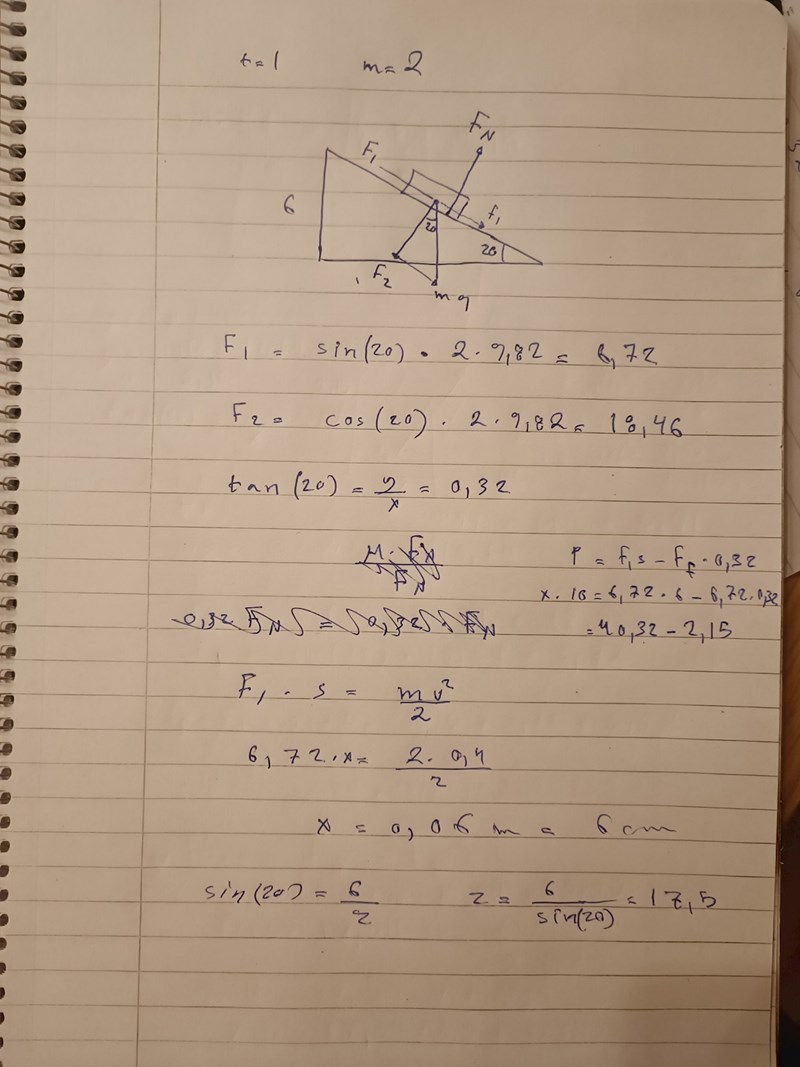 t=1 m=2
F_N
F_1
6
f_1
20
20
F_2
mg
F_1 = sin(20) · 2·9,82 = 6,72
F_2 = cos(20) · 2·9,82 = 18,46
tan(20) = y/x = 0,32
P = F_1s - F_f · 0,32
x · 10 = 6,72 · 6 - 6,72·0,32
= 40,32 - 2,15
F_1 · s = mv²/2
6,72·x = 2·0,4/2
x = 0,06 m = 6 cm
sin(20) = 6/z z = 6/sin(20) = 17,5